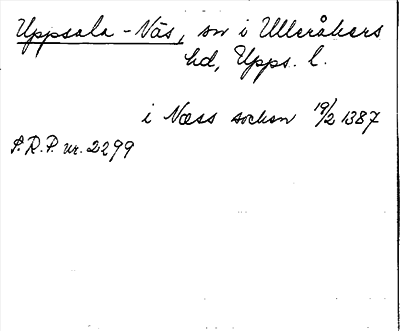 Uppsala-Näs, sn i Ulleråkers
hd, Upps. l.
i Næss sockon 19/2 1387
S.R.P. nr. 2299